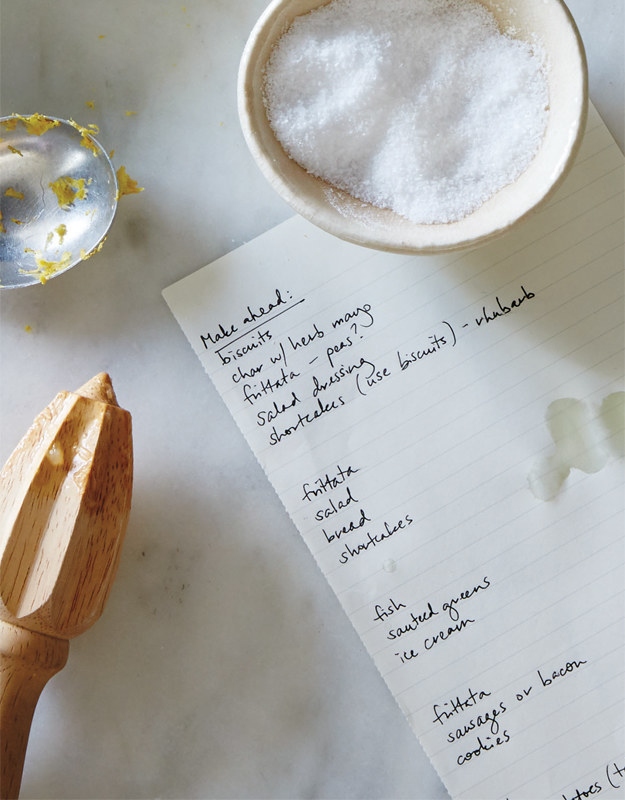 Make ahead:
biscuits
char w/ herb mayo
frittata - peas?
salad dressing
shortcakes (use biscuits) - rhubarb
frittata
salad
bread
shortcakes
fish
sauteed greens
ice cream
frittata
sausages or bacon
cookies